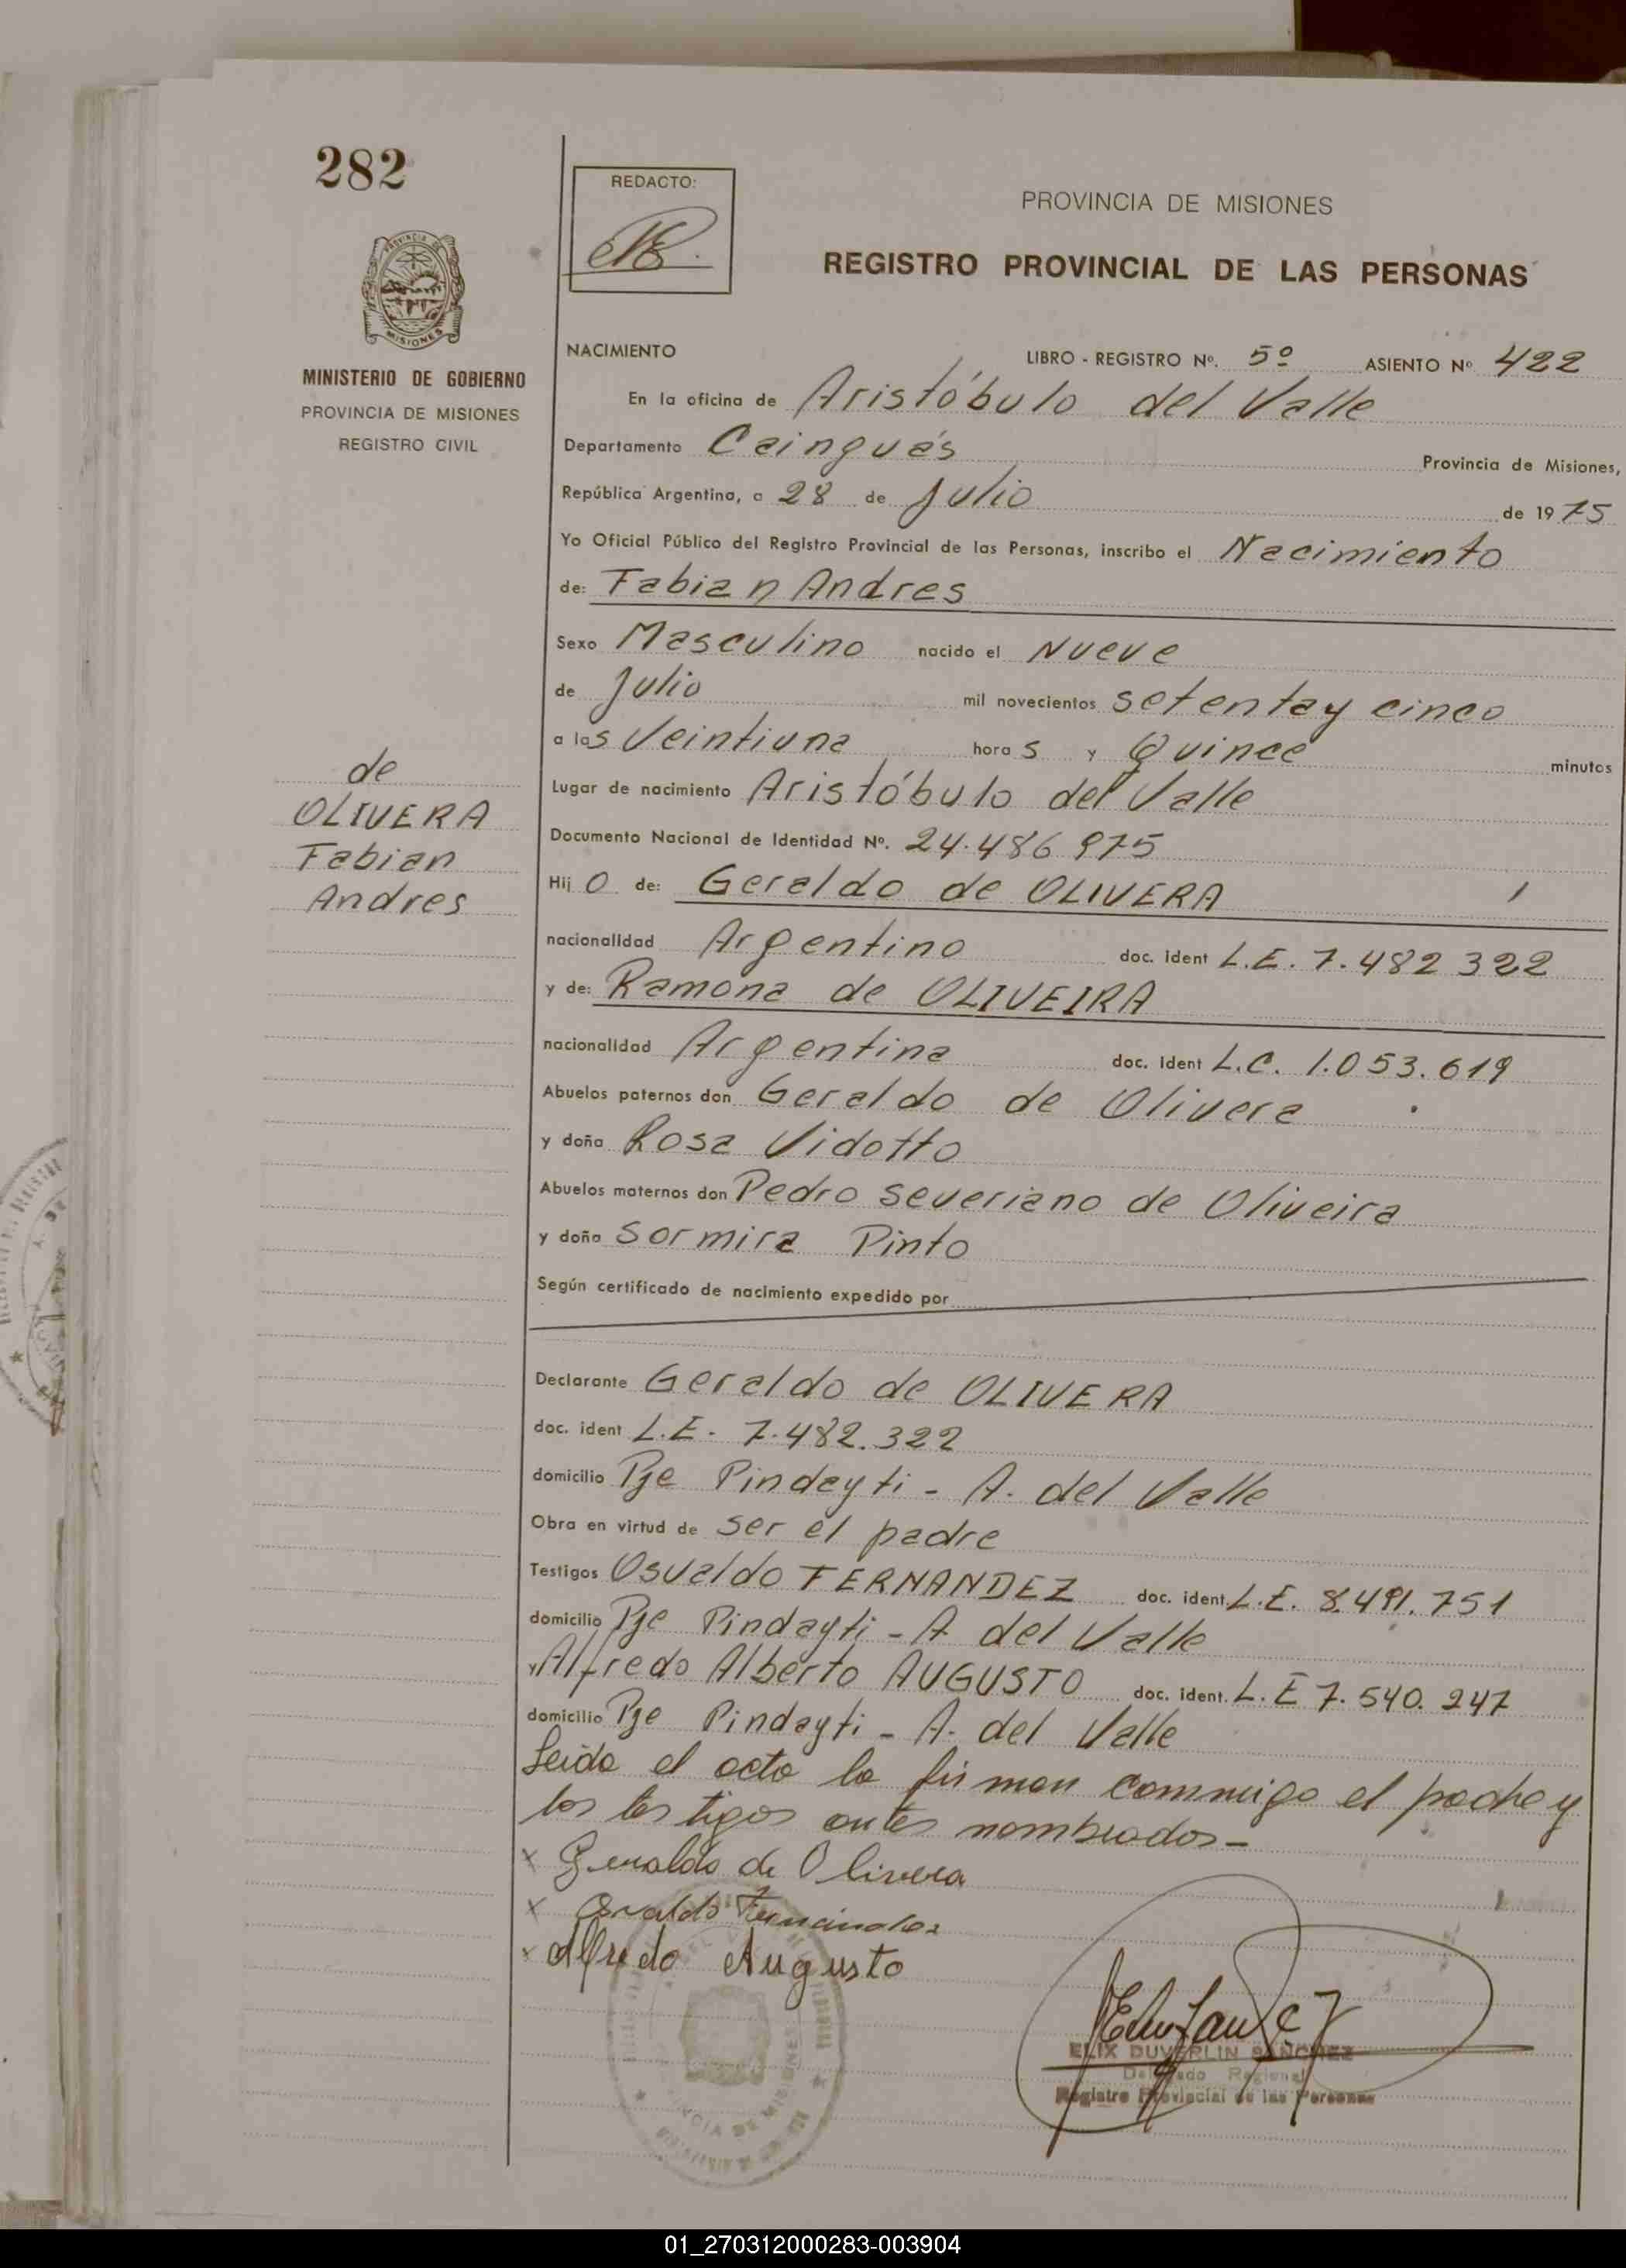 282
REDACTO:
PROVINCIA DE MISIONES
REGISTRO PROVINCIAL DE LAS PERSONAS
PROVINCIA DE
MISIONES
MINISTERIO DE GOBIERNO
PROVINCIA DE MISIONES
REGISTRO CIVIL
NACIMIENTO LIBRO - REGISTRO Nº. 5º ASIENTO Nº 422
En la oficina de Aristóbulo del Valle
Departamento Cainguás Provincia de Misiones,
República Argentina, a 28 de Julio de 1975
Yo Oficial Público del Registro Provincial de las Personas, inscribo el Nacimiento
de: Fabian Andres
Sexo Masculino nacido el Nueve
de Julio mil novecientos setenta y cinco
a las Veintiuna horas y Quince minutos
Lugar de nacimiento Aristóbulo del Valle
Documento Nacional de Identidad Nº. 24.486 975
Hijo de: Geraldo de OLIVERA
nacionalidad Argentino doc. ident L.E. 7.482 322
y de: Ramona de OLIVEIRA
nacionalidad Argentina doc. ident L.C. 1.053.619
Abuelos paternos don Geraldo de Olivera
y doña Rosa Vidotto
Abuelos maternos don Pedro Severiano de Oliveira
y doña Sormira Pinto
Según certificado de nacimiento expedido por
de
OLIVERA
Fabian
Andres
Declarante Geraldo de OLIVERA
doc. ident L.E. 7.482.322
domicilio Pje Pindayti - A. del Valle
Obra en virtud de ser el padre
Testigos Osvaldo FERNANDEZ doc. ident. L.E. 8.491.751
domicilio Pje Pindayti - A del Valle
y Alfredo Alberto AUGUSTO doc. ident. L.E 7.540.247
domicilio Pje Pindayti - A. del Valle
Leida el acta la firman conmigo el padre y
los testigos antes nombrados -
x Geraldo de Olivera
x Osvaldo Fernandez
x Alfredo Augusto
ELIX DUVERLIN SANCHEZ
Delegado Regional
Registro Provincial de las Personas
01_270312000283-003904